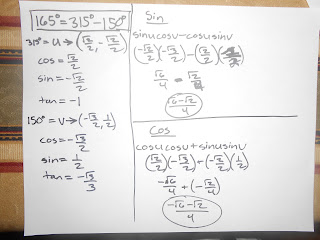 165° = 315° - 150°
315° = u → (√2/2, -√2/2)
cos = √2/2
sin = -√2/2
tan = -1
150° = v → (-√3/2, 1/2)
cos = -√3/2
sin = 1/2
tan = -√3/3
Sin
sinucosv - cosusinv
(-√2/2)(-√3/2) - (√2/2)(1/2)
√6/4 = √2/4
√6-√2/4
Cos
cosucosv + sinusinv
(√2/2)(-√3/2) + (-√2/2)(1/2)
-√6/4 + (-√2/4)
-√6-√2/4